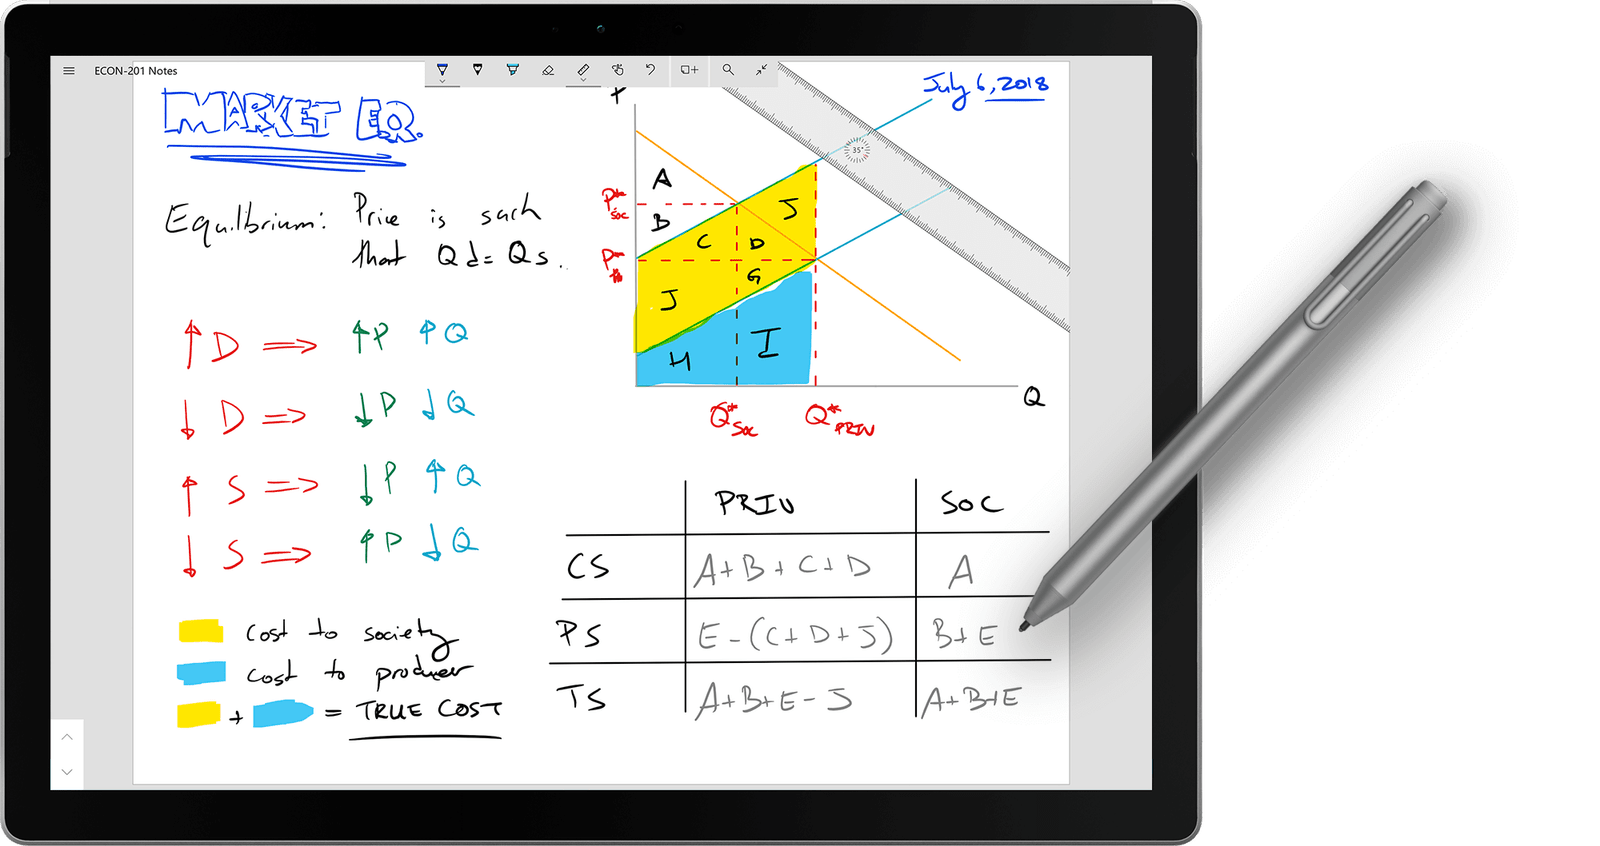 ECON-201 Notes
July 6, 2018
MARKET EQ.
Equilibrium: Price is such
that Qd = Qs.
↑ D ⇒ ↑P ↑Q
↓ D ⇒ ↓P ↓Q
↑ S ⇒ ↓P ↑Q
↓ S ⇒ ↑P ↓Q
cost to society
cost to producer
+ = TRUE COST
P
35°
A
P* SOC
B
J
C D
P*
G
J
H I
Q
Q* SOC Q* PRIV
PRIV SOC
CS A+B+C+D A
PS E-(C+D+J) B+E
TS A+B+E-J A+B+E